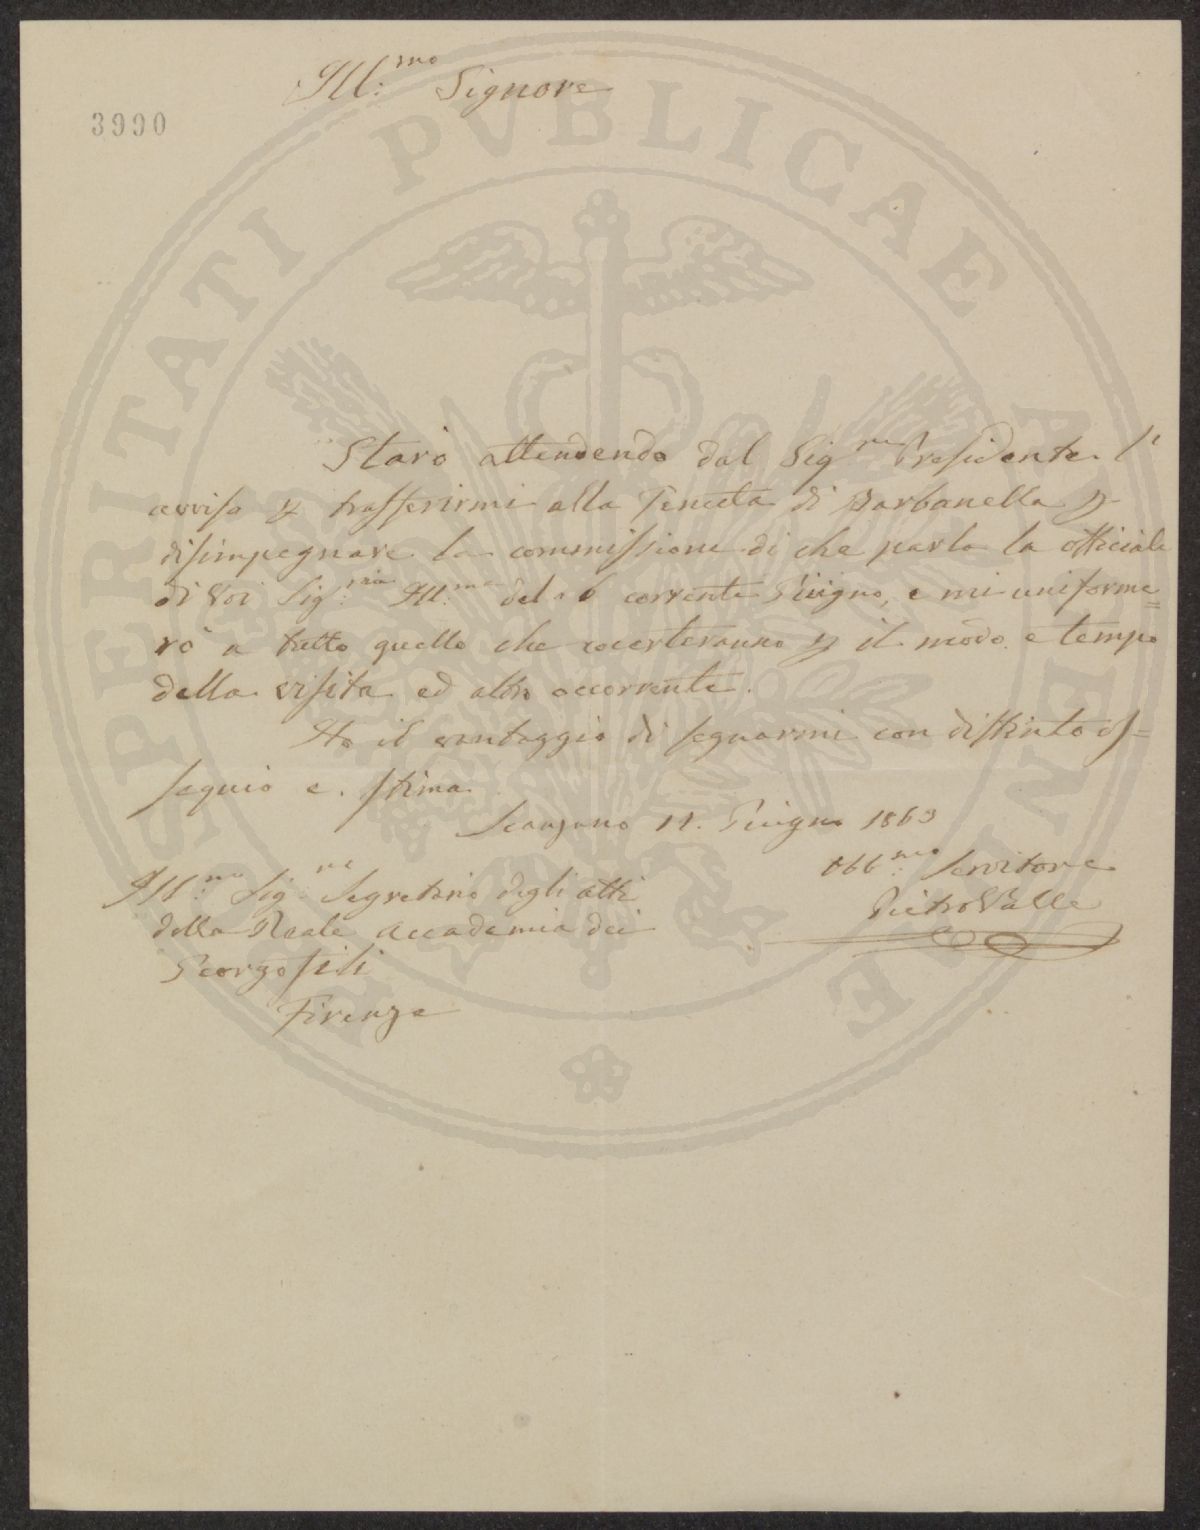 Ill:mo Signore
3990
PROSPERITATI PVBLICAE AVGENDAE
Starò attendendo dal Sigre Presidente l'
avviso p trasferirmi alla Tenuta di Barbanella p
disimpegnare la commissione di che parla la officiale
di Voi Sig:ria Ill:ma del 6 corrente Giugno, e mi uniforme=
rò a tutto quello che p il modo e tempo
della visita ed altro occorrente.
Ho il vantaggio di segnarmi con distinto os=
sequio e stima
Scanzano 11. Giugno 1863
Obb:mo Servitore
Pietro Valle
Ill:mo Sig:re Segretario degli atti
della Reale Accademia dei
Georgofili
Firenze